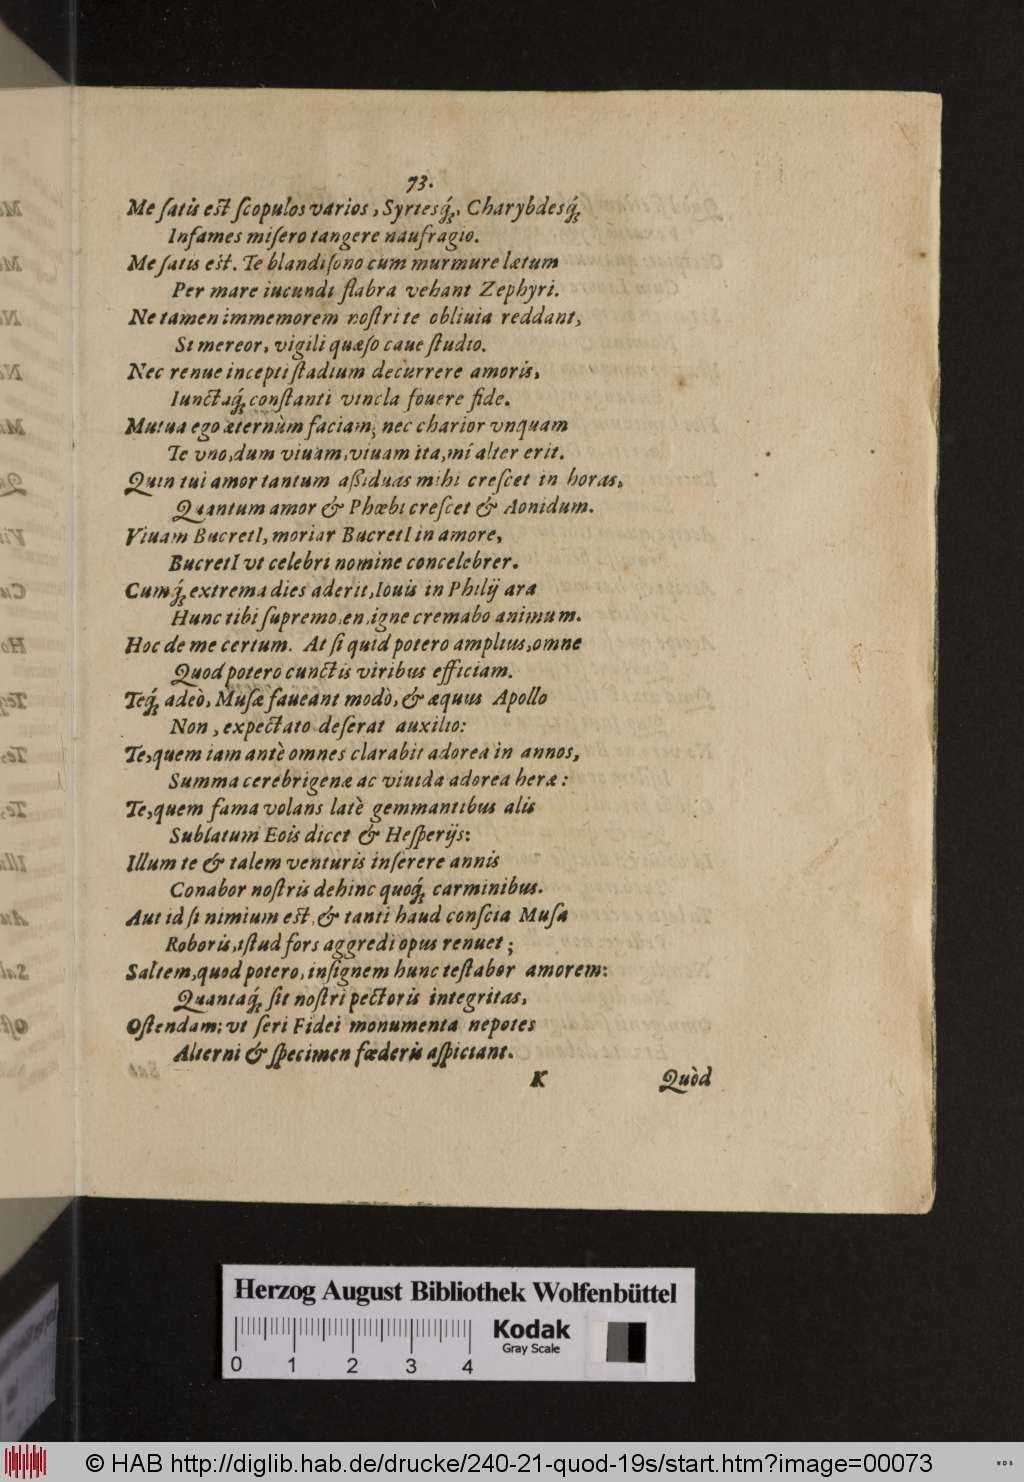 73.
Me ſatis eſt ſcopulos varios, Syrtesq́;, Charybdesq́;
Infames miſero tangere naufragio.
Me ſatis eſt. Te blandiſono cum murmure lætum
Per mare iucundi flabra vehant Zephyri.
Ne tamen immemorem noſtri te obliuia reddant,
Si mereor, vigili quæſo caue ſtudio.
Nec renue incepti ſtadium decurrere amoris,
Iunctaq́; conſtanti vincla fouere fide.
Mutua ego æternùm faciam; nec charior vnquam
Te vno, dum viuam, viuam ita, mî alter erit.
Quin tui amor tantum aßiduas mihi creſcet in horas,
Quantum amor & Phœbi creſcet & Aonidum.
Viuam BucretI, moriar BucretI in amore,
BucretI vt celebri nomine concelebrer.
Cumq́; extrema dies aderit, Iouis in Philij ara
Hunc tibi ſupremo, en, igne cremabo animum.
Hoc de me certum. At ſi quid potero amplius, omne
Quod potero cunctis viribus efficiam.
Teq́; adeò, Muſæ faueant modò, & æquus Apollo
Non, expectato deſerat auxilio:
Te, quem iam antè omnes clarabit adorea in annos,
Summa cerebrigenæ ac viuida adorea heræ:
Te, quem fama volans latè gemmantibus alis
Sublatum Eois dicet & Heſperijs:
Illum te & talem venturis inſerere annis
Conabor noſtris dehinc quoq́; carminibus.
Aut id ſi nimium eſt, & tanti haud conſcia Muſa
Roboris, iſtud fors aggredi opus renuet;
Saltem, quod potero, inſignem hunc teſtabor amorem:
Quantaq́; ſit noſtri pectoris integritas,
Oſtendam; vt ſeri Fidei monumenta nepotes
Alterni & ſpecimen fœderis aſpiciant.
K Quòd
Herzog August Bibliothek Wolfenbüttel
Kodak
Gray Scale
0 1 2 3 4
© HAB http://diglib.hab.de/drucke/240-21-quod-19s/start.htm?image=00073